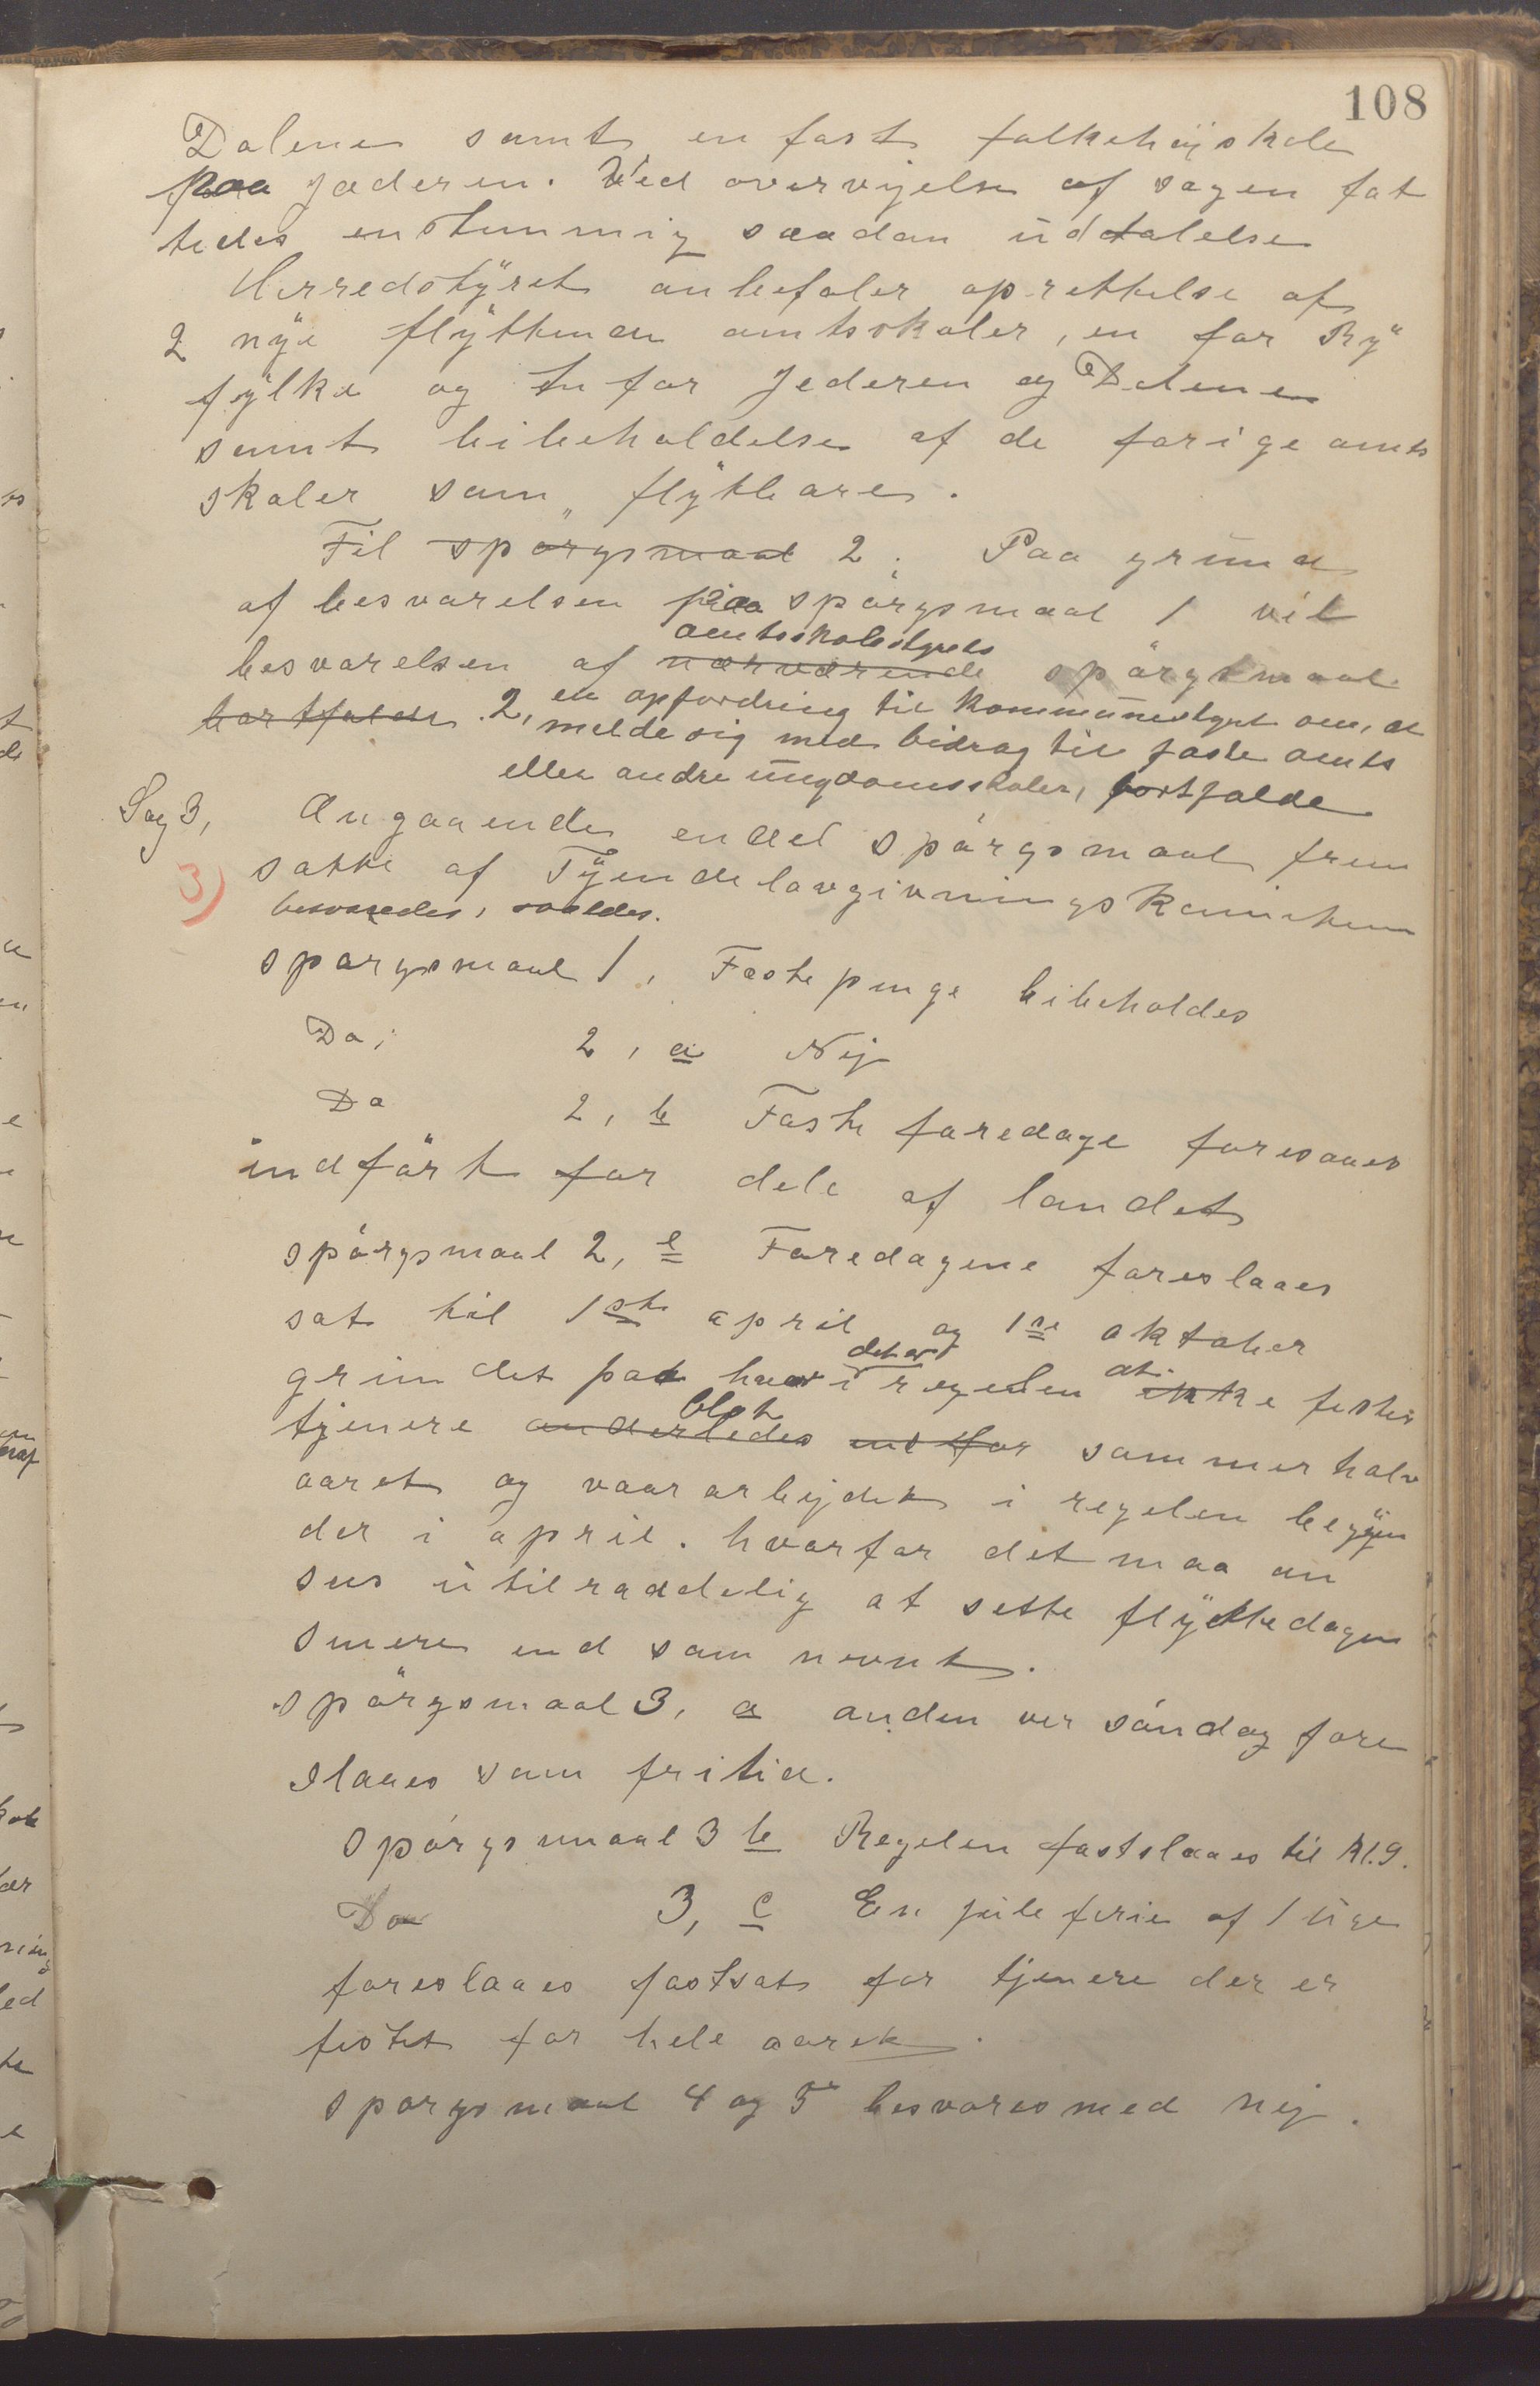 108
Dalene samt en fast folkehøjskole
paa Jæderen. Ved overvejelse af sagen fat
tedes enstemmig saadan üdtalelse
Herredstÿret anbefaler oprettelse af
2 nÿe flÿttende amtsskoler, en for Rÿ
fÿlke og en for Jederen og Dalene
samt bibeholdelse af de forige amts
skoler som flÿtbare.
Til spørgsmaal 2. Paa gründ
af besvarelsen paa spørgsmaal 1 vil
amtsskolestyrets
besvarelsen af nærværende spørgsmaal
bortfalde 2, en opfordring til kommünestyret om, at
melde sig med bidrag til faste amts
eller andre üngdomsskoler, bortfalde
Sag 3, Angaaende endel spørgsmaal frem
3) satte af Tÿendelovgivningskomiteen
besvaredes, saaledes.
spørgsmaal 1, Fæstepenge bibeholdes
Do, 2, a Nej
Do 2, b Faste faredage foreslaaes
indført for dele af landet
spørgsmaal 2, c Faredagene foreslaaes
sat til 1ste april og 1ste oktober
grün det paa hvor det er i regelen at ikke fester
blot
tjenere anderledes end for sommerhalv
aaret og vaararbejdet i regelen begÿn
der i april. hvorfor det maa an
sees ütilraadelig at sette flÿttedagen
senere end som nevnt.
spørgsmaal 3, a anden ver søndag fore
slaaes som fritid.
Spørgsmaal 3 b Regelen fastslaaes til kl. 9.
Do 3, c En juleferie af 1 üge
foreslaaes fastsat for tjenere der er
festet for hele aaret.
spørgsmaal 4 og 5 besvares med nej.